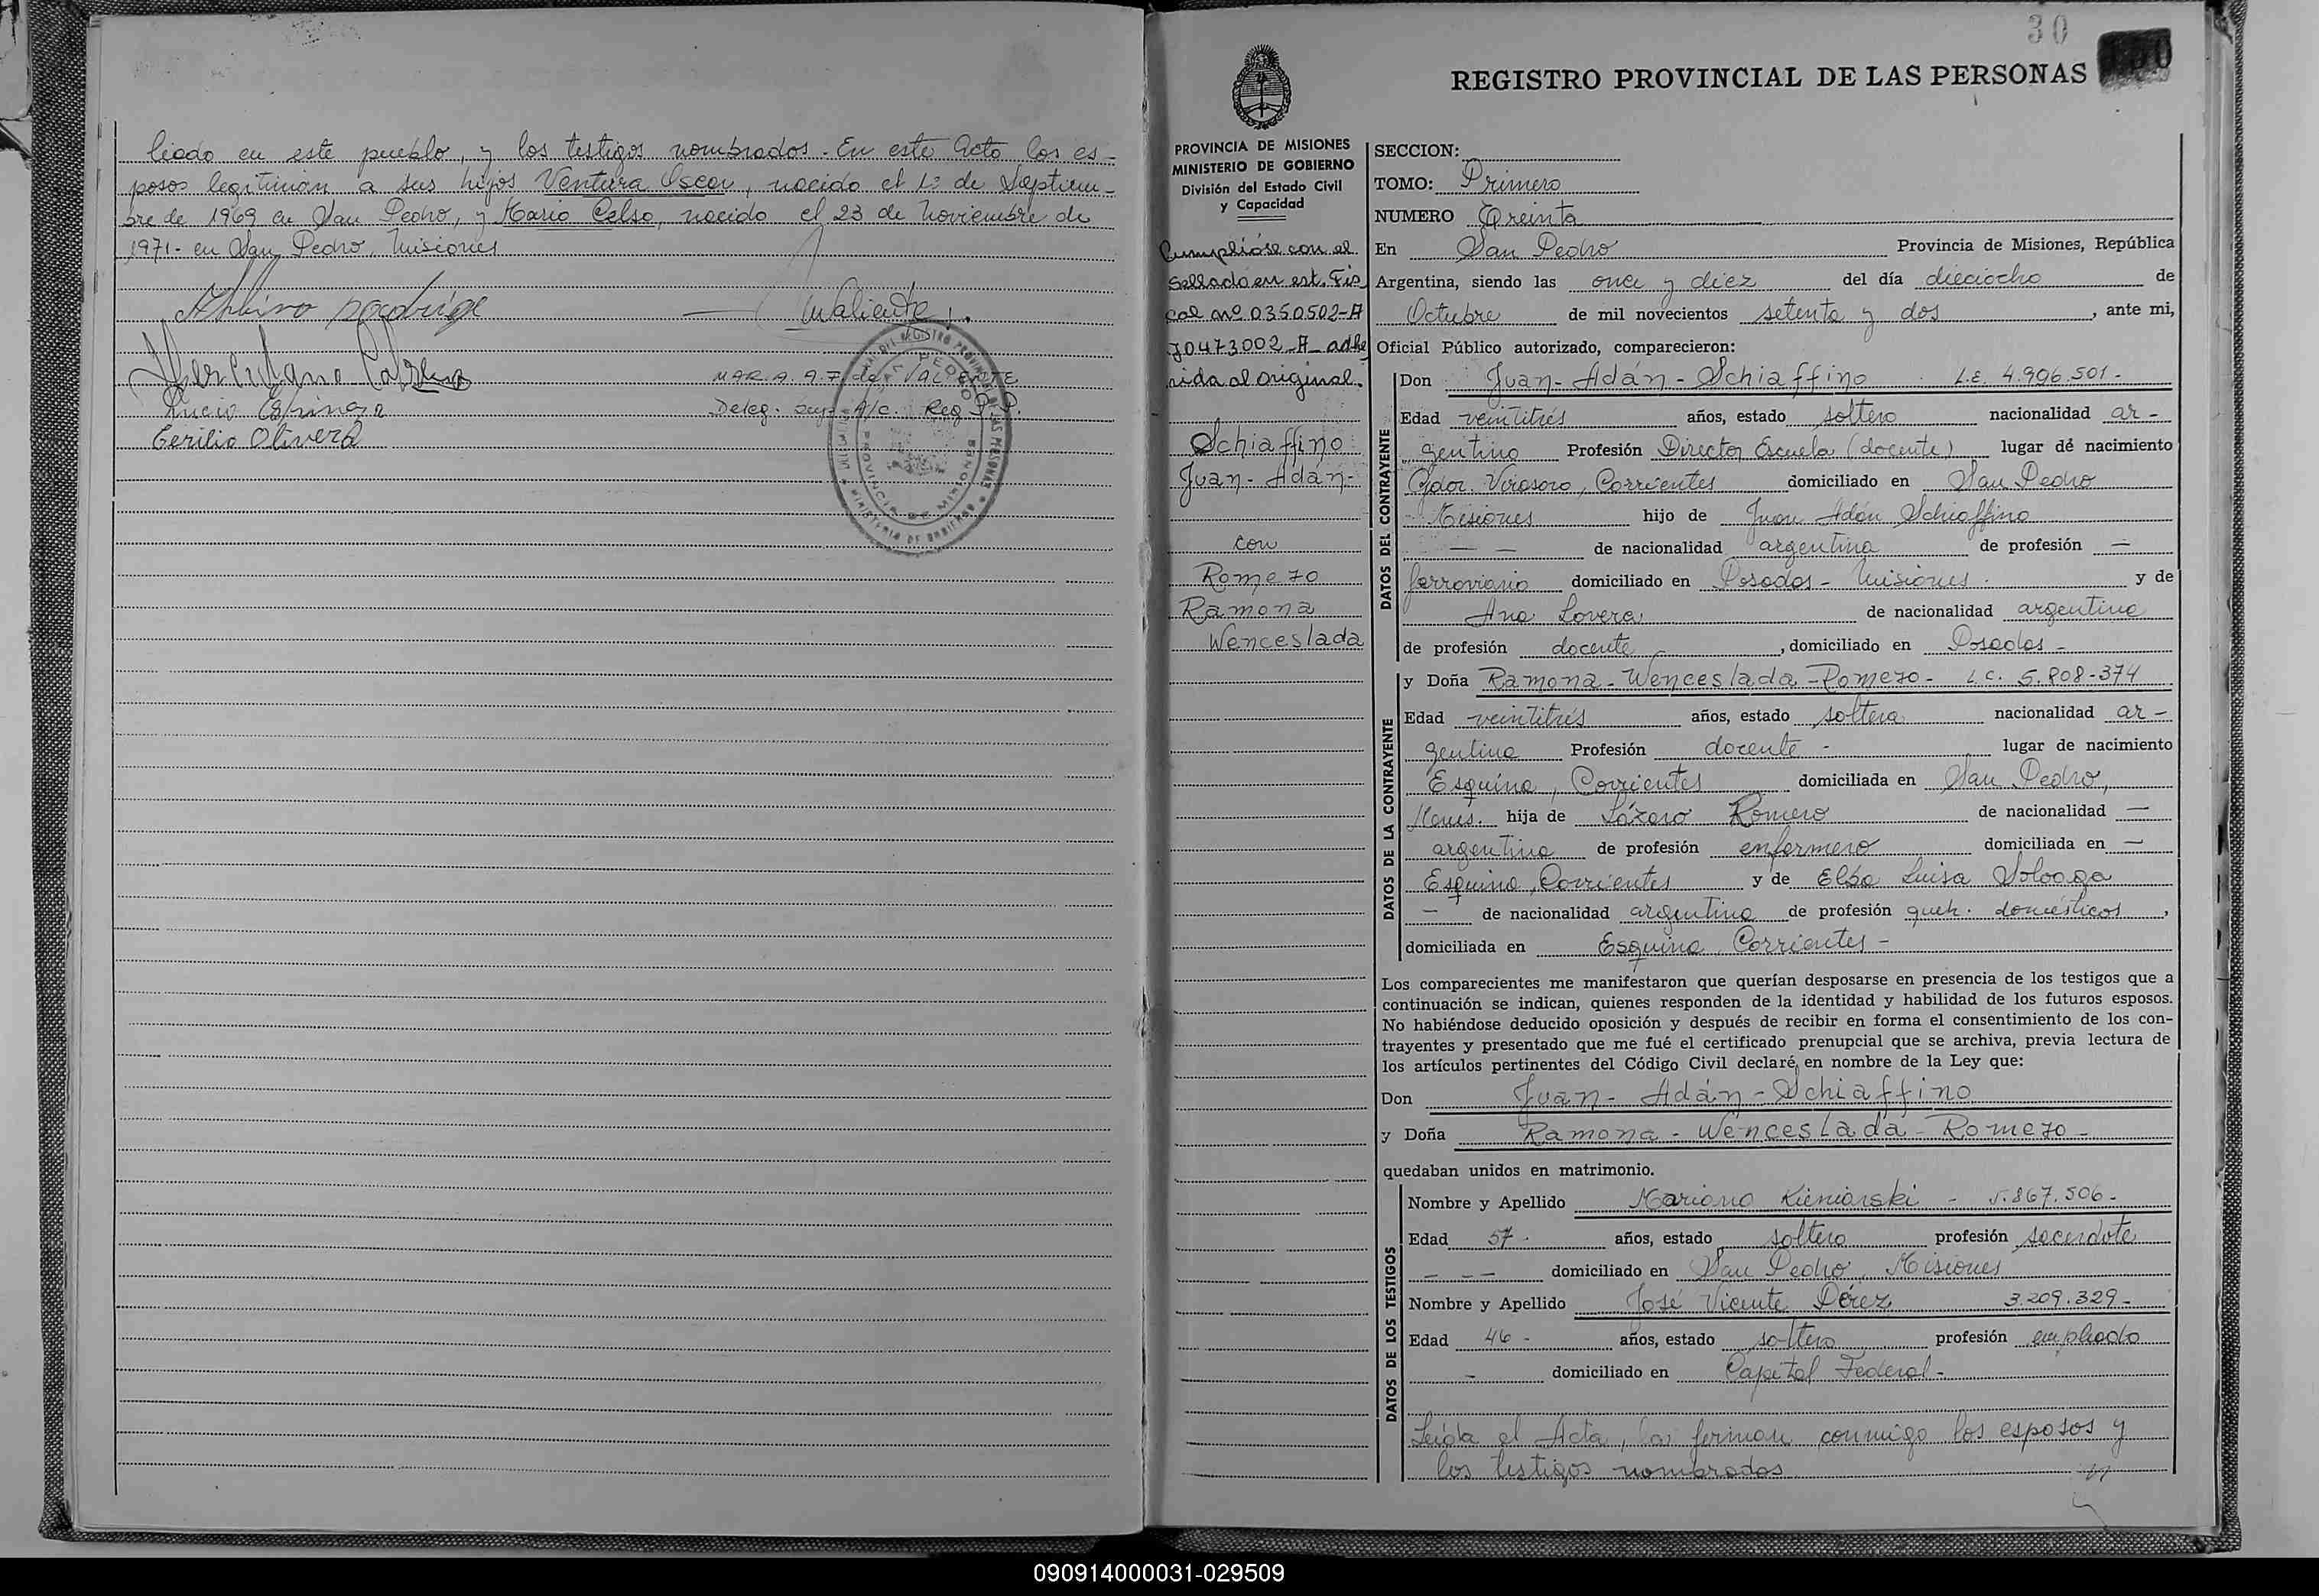 liado en este pueblo, y los testigos nombrados. En este Acto los es-
posos legitiman a sus hijos Ventura Oscar, nacido el 1º de Septiem-
bre de 1969 en San Pedro, y Mario Celso, nacido el 23 de Noviembre de
1971- en San Pedro, Misiones
MValiente
Lucio Espinoza
Cerilio Olivera
MAR.A. A.F. de VALIENTE
Deleg. Sup. A/c. Reg. P.P.
30
REGISTRO PROVINCIAL DE LAS PERSONAS
PROVINCIA DE MISIONES
MINISTERIO DE GOBIERNO
División del Estado Civil
y Capacidad
Cumplióse con el
Sellado en est. Fis
cal nº 0350502-A
y 0473002-A- adhe
rida al Original.
Schiaffino
Juan-Adán-
con
Romero
Ramona
Wenceslada
SECCION:
TOMO: Primero
NUMERO Treinta
En San Pedro Provincia de Misiones, República
Argentina, siendo las once y diez del día dieciocho de
Octubre de mil novecientos setenta y dos, ante mi,
Oficial Público autorizado, comparecieron:
DATOS DEL CONTRAYENTE
Don Juan-Adán-Schiaffino L.E. 4.996.501-
Edad veintitrés años, estado soltero nacionalidad ar-
gentino Profesión Director Escuela (docente) lugar de nacimiento
Gdor. Virasoro, Corrientes domiciliado en San Pedro
Misiones hijo de Juan Adán Schiaffino
— — de nacionalidad argentina de profesión —
ferroviario domiciliado en Posadas- Misiones y de
Ana Lovera de nacionalidad argentina
de profesión docente, domiciliado en Posadas-
DATOS DE LA CONTRAYENTE
y Doña Ramona-Wenceslada-Romero- L.C. 5.808-374
Edad veintitrés años, estado soltera nacionalidad ar-
gentina Profesión docente- lugar de nacimiento
Esquina, Corrientes domiciliada en San Pedro,
Mnes. hija de Lázaro Romero de nacionalidad —
argentina de profesión enfermero domiciliada en —
Esquina, Corrientes y de Elba Luisa Sologa
— de nacionalidad argentina de profesión queh. domésticos,
domiciliada en Esquina, Corrientes-
Los comparecientes me manifestaron que querían desposarse en presencia de los testigos que a
continuación se indican, quienes responden de la identidad y habilidad de los futuros esposos.
No habiéndose deducido oposición y después de recibir en forma el consentimiento de los con-
trayentes y presentado que me fué el certificado prenupcial que se archiva, previa lectura de
los artículos pertinentes del Código Civil declaré, en nombre de la Ley que:
Don Juan-Adán-Schiaffino
y Doña Ramona-Wenceslada-Romero-
quedaban unidos en matrimonio.
DATOS DE LOS TESTIGOS
Nombre y Apellido Mariano Kieniarski - 5.867.506-
Edad 57- años, estado soltero profesión sacerdote
— — — domiciliado en San Pedro, Misiones
Nombre y Apellido José Vicente Pérez 3.209.329-
Edad 46- años, estado soltero profesión empleado
- domiciliado en Capital Federal-
Leída el Acta, la firman conmigo los esposos y
los testigos nombrados
090914000031-029509